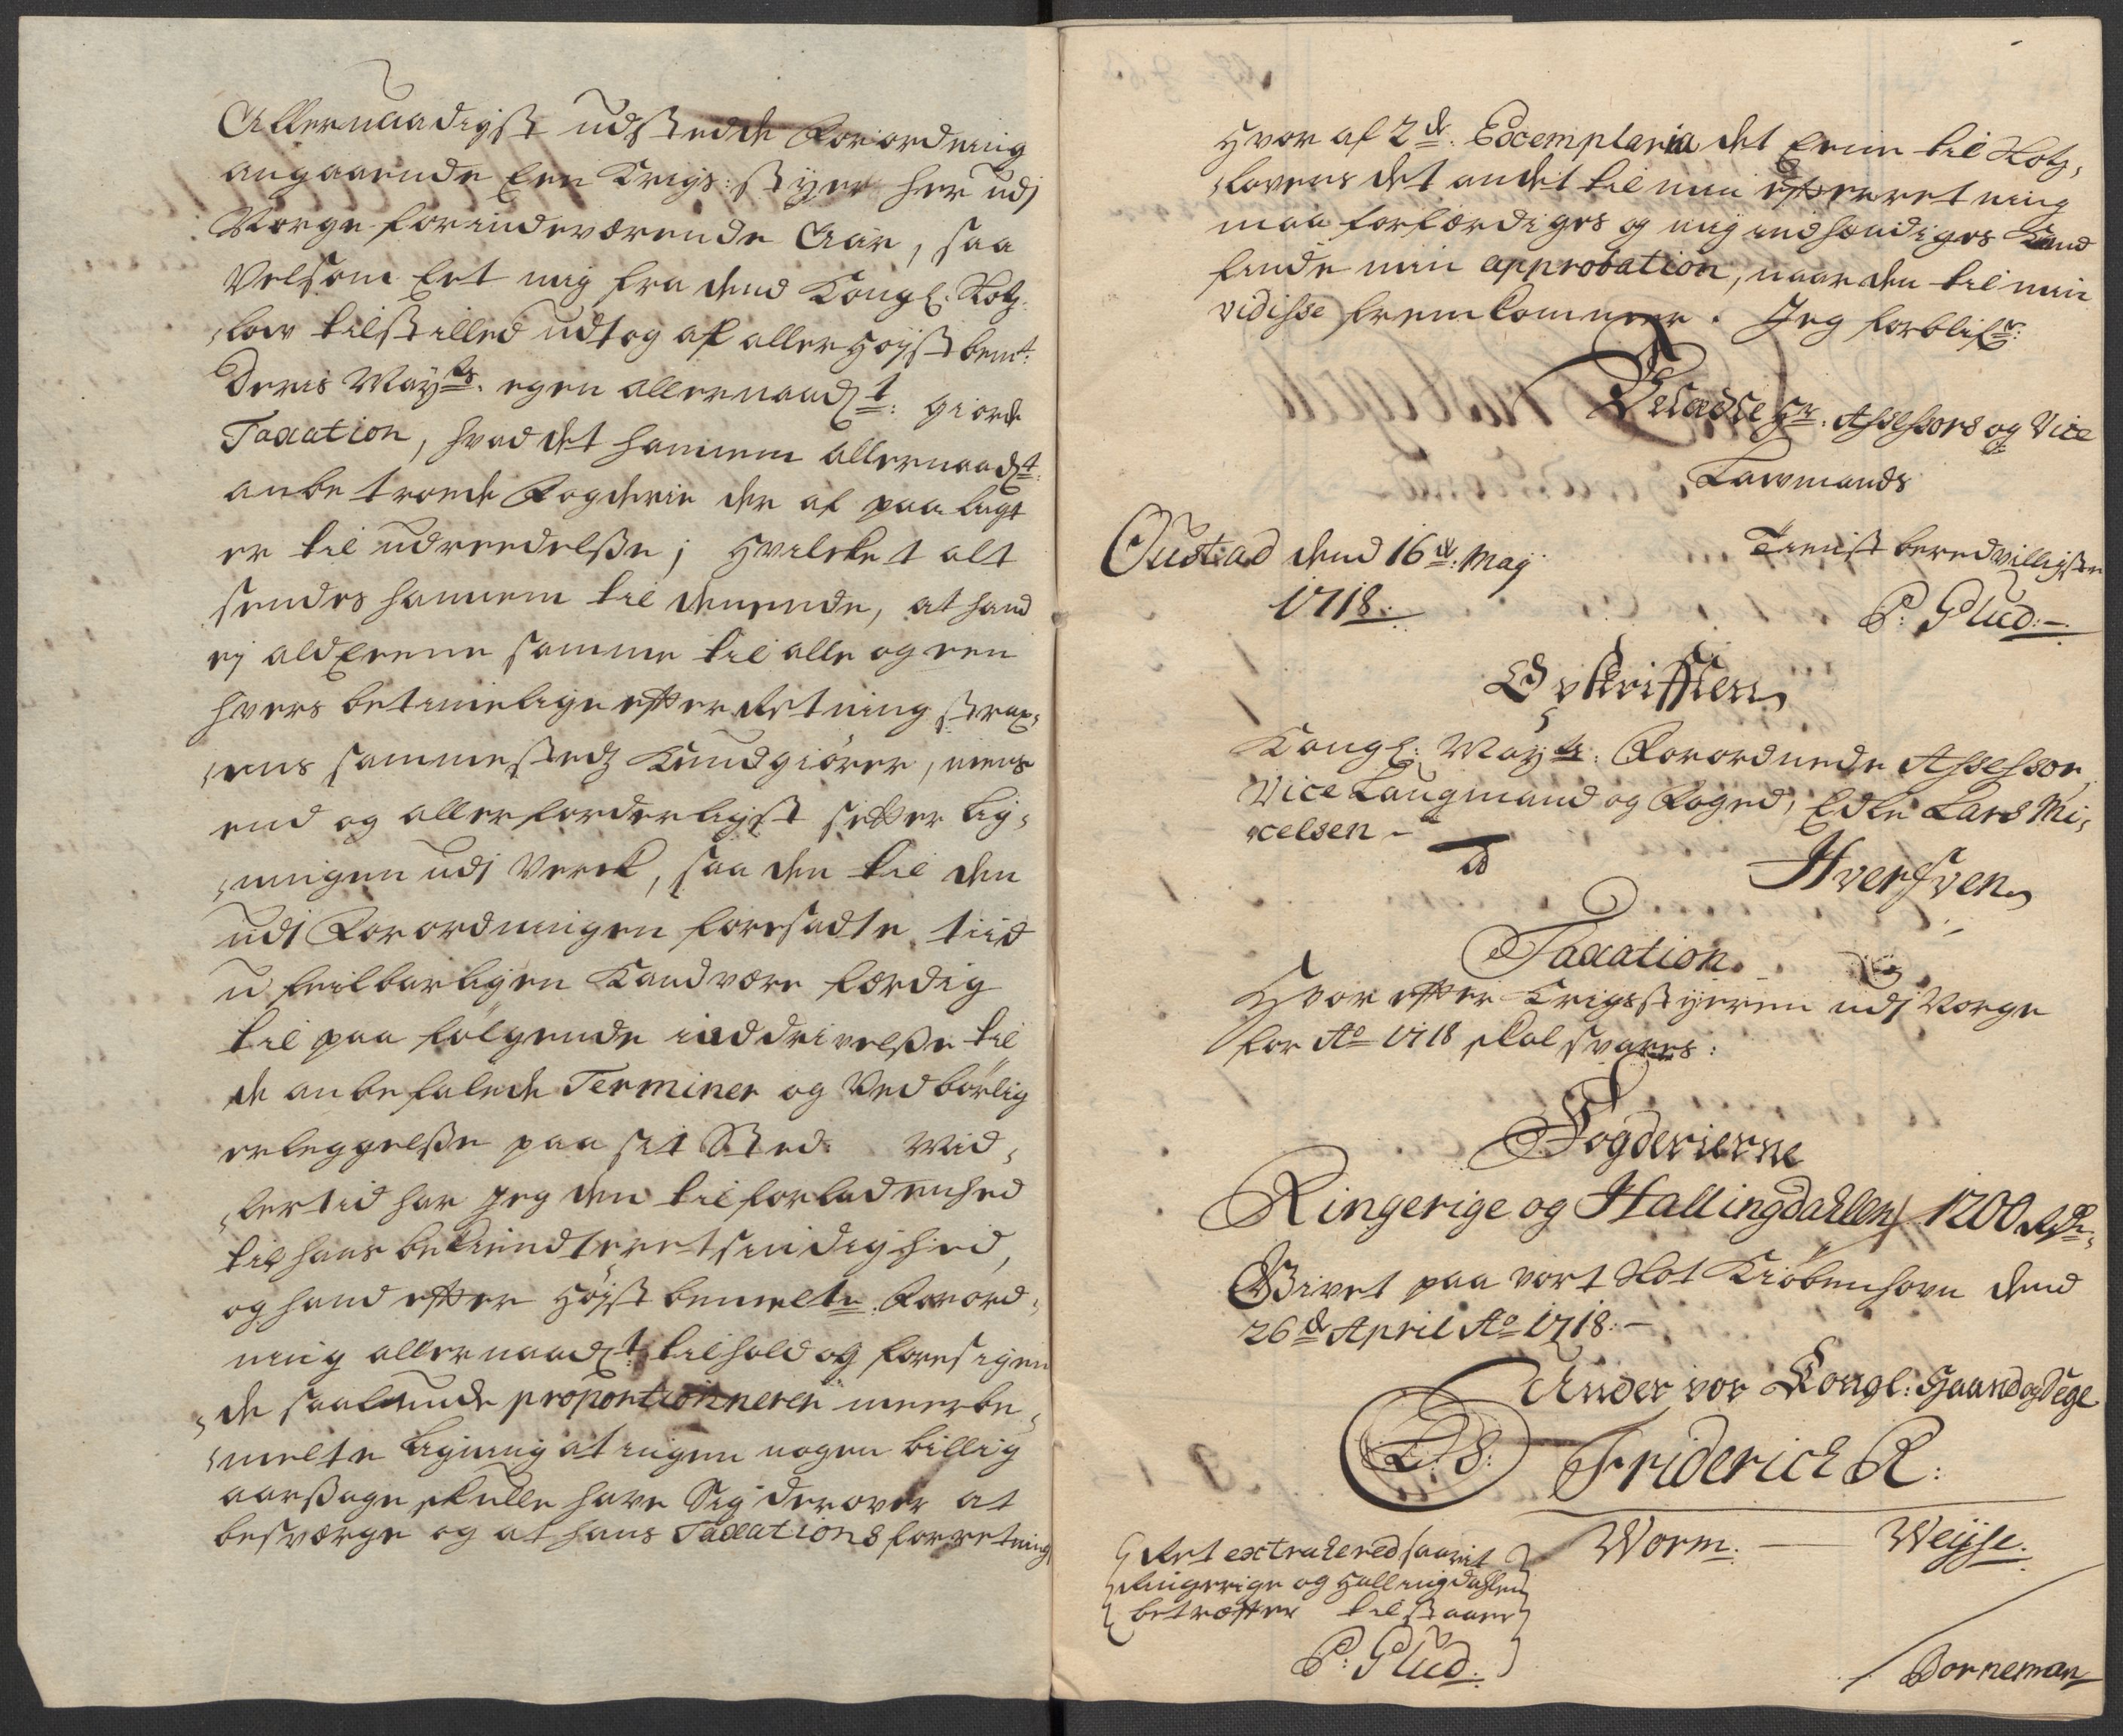 Allernaadigst udstædde Forordning
angaaende Een Krigs: styer her udj
Norge for indeværende Aar, saa
Velsom Eet mig fra dend Kongl. Slotz-
lov tilstilled udtog af allerhøyst bemt:
Deris Mayts. egen allernaadt: giorde
Taxation, hvad det hannem allernaadt:
anbetroede Fogderie der af paalagt
er til udreedelsse; hvilcket alt
sendes hannem til dennende, at hand
ej aldEene samme til alle og een
hvers betimelige efterretning strax-
ens sammestedz Kundgiører, mens
end og allerforderligst setter Lig-
ningen udj Verck, saa den til den
udj Forordningen foresadte tiid
ufeilbarligen Kand være færdig
til paafølgende inddrivelsse til
de anbefalede Terminer og Ved børlig
erleggelsse paa sit Sted. Mid-
lertid har Jeg den tilforladenhed
til hans bekiendte retsindighed,
og hand efter høyst bemelte Forord-
ning allernaadt: tilhold og foresigen
de saalunde proportionnerer meerbe-
melte Ligning at ingen nogen billig
aarsage skulle have Sig derover at
besverge og at hans Taxations forretning
hvor af 2de. Exemplaria det Eene til Slotz-
lovens det andet til min efterretning
maa forfærdiges og mig indhændiges Kand
finde min approbation, naar den til min
vidisse fremkommer. Jeg forblifr:
Velædle Hr. Assessors og Vice
Lawmands
Oustad dend 16de: Maij
1718.
Tienist beredvilligste
P: Glud.
Udskrifften
Kongl: Mayts: Forordnede Assessor
Vice Laugmand og Foged, Edle Lars Mi-
celsen
a
Hversven
Taxation
Hvor efter Krigsstyeren udj Norge
for Ao 1718 skal svares:
Fogderierne
Ringerige og Hallingdahlen 1200 Rdr.
Givet paa vort Slot Kiøbenhavn dend
26de April Ao 1718.
Under vor Kongl: Haand og Segl
L.S: Friderich R:
Worm. Weyse.
Ret extraheret saavit
Ringerige og Hallingdahlen
betræffer tilstaaer
P: Glud.
Borneman